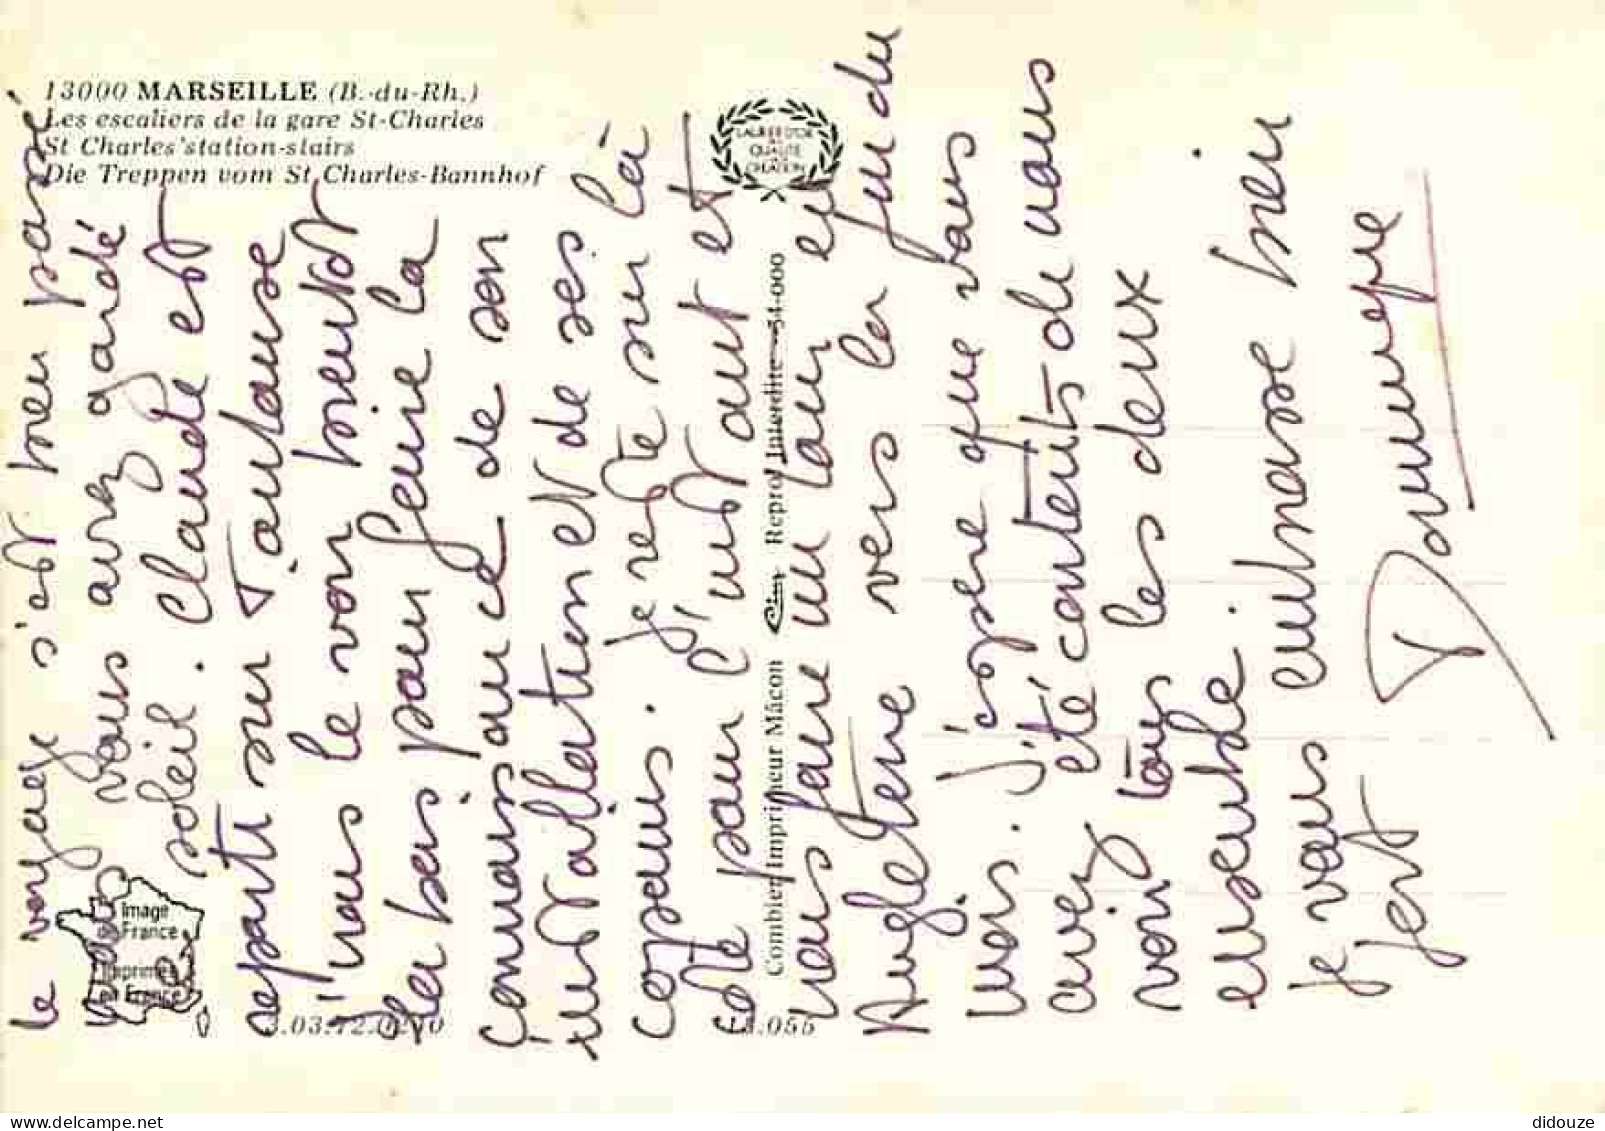 13000 MARSEILLE (B.-du-Rh.)
Les escaliers de la gare St-Charles
St Charles'station-stairs
Die Treppen vom St Charles-Bannhof
LAURIER D'OR
DE
QUALITÉ
CRÉATION
Combier Imprimeur Mâcon Cim Reprod Interdite 54-000
Image
de France
Imprimée
en France
3.03.72.0210
13.055
le voyage s'est bien passé
vous avez gardé
le soleil. Claude est
reparti sur Toulouse
j'irais le voir bientôt
là bas pour faire la
connaissance de son
installation et de ses
copains. je reste sur là
côte pour l'instant et
vais faire un tour en
Angleterre vers la fin du
mois. j'espère que vous
avez été contents de nous
voir tous les deux
ensemble.
je vous embrasse bien
fort
Dominique
didouze